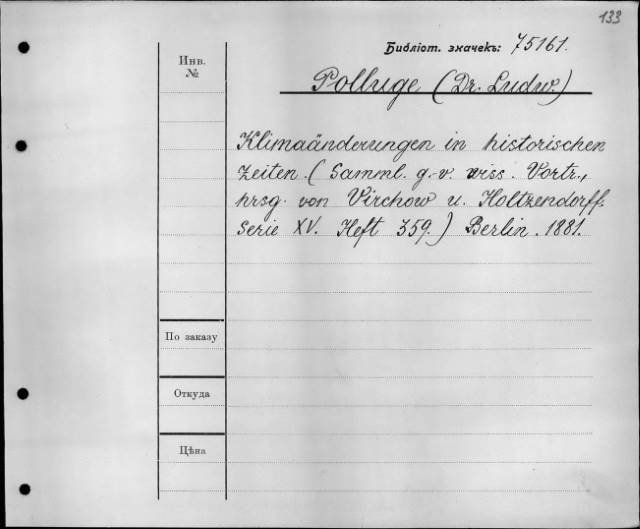 133
Библіот. значекъ: 75161.
Инв.
№
Polluge (Dr. Ludw.)
Klimaänderungen in historischen
Zeiten. (Samml. g.-v. wiss. Vortr.,
hrsg. von Virchow u. Holtzendorff.
Serie XV. Heft 359.) Berlin. 1881.
По заказу
Откуда
Цѣна